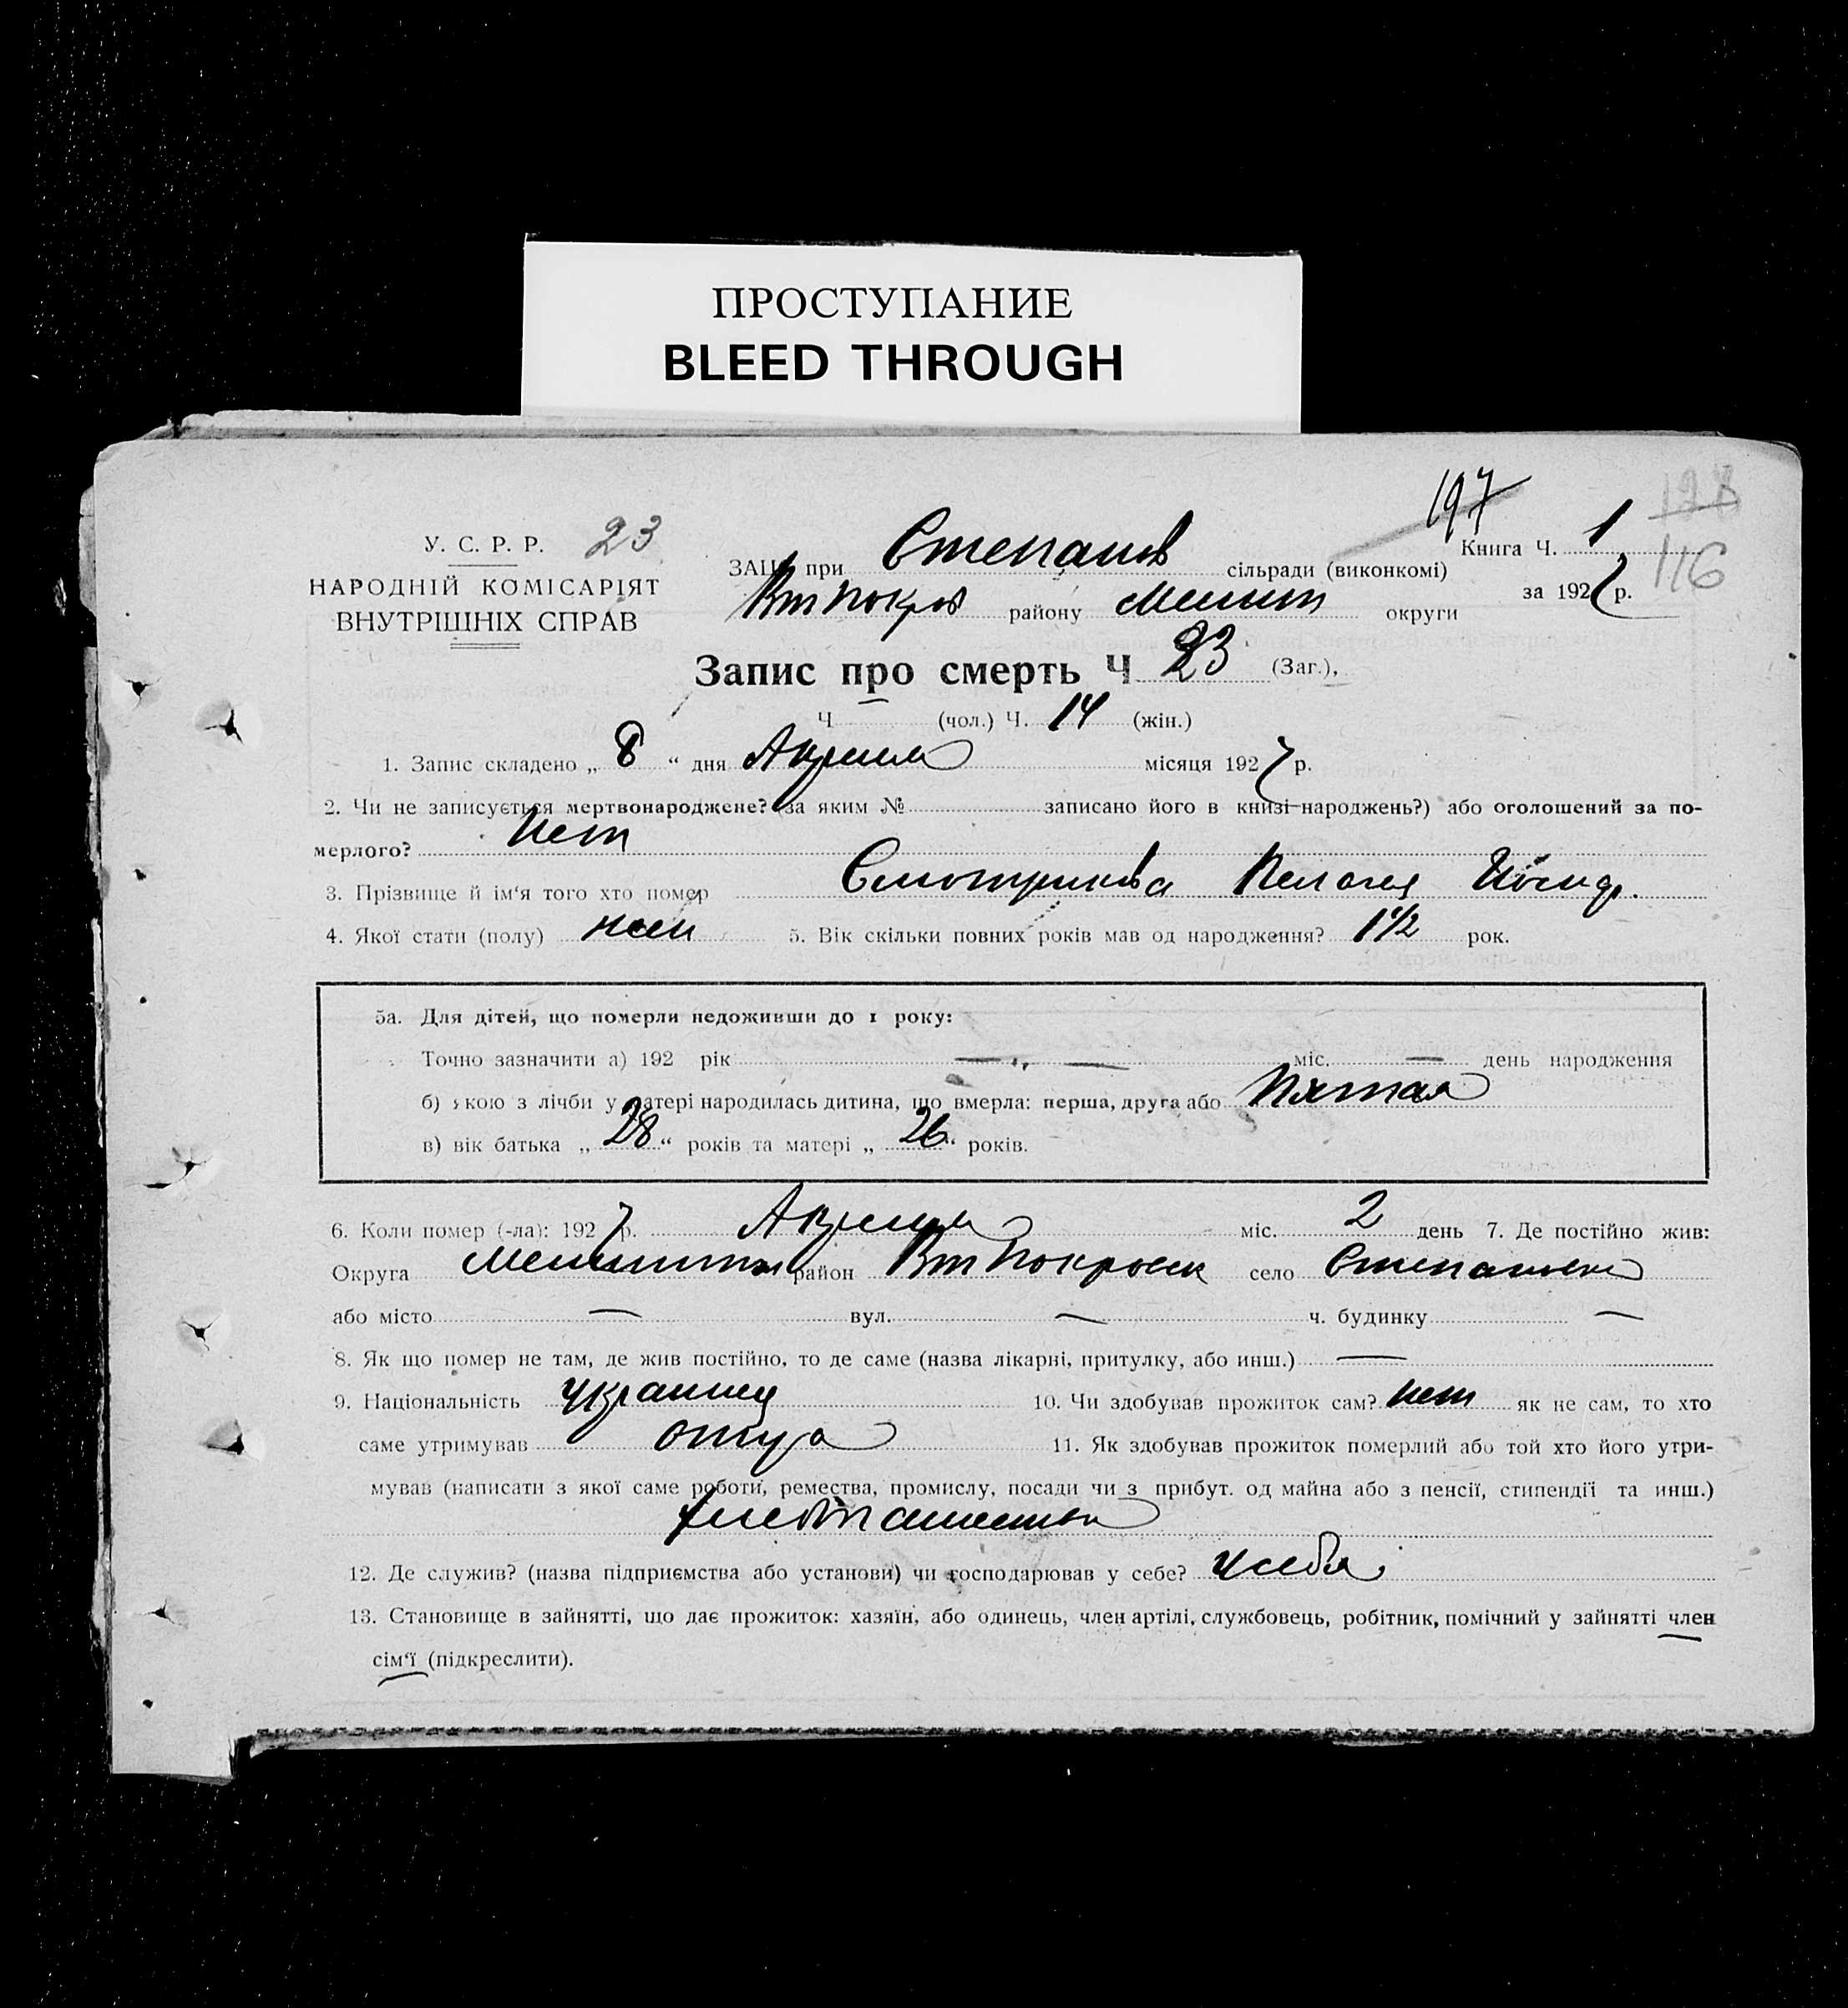 ПРОСТУПАНИЕ
BLEED THROUGH
197
128
У. С. Р. Р. 23
НАРОДНІЙ КОМІСАРІЯТ
ВНУТРІШНІХ СПРАВ
ЗАЦС при Степанов сільради (виконкомі)
Книга Ч. 1
116
Вт Покров району Мелит округи
за 1927 р.
Запис про смерть Ч 23 (Заг.),
Ч (чол.) Ч. 14 (жін.)
1. Запис складено „ 8 “ дня Апреля місяця 1927 р.
2. Чи не записується мертвонароджене? (за яким № записано його в книзі народжень?) або оголошений за по-
мерлого? Нет
3. Прізвище й ім‘я того хто помер Пелагея
4. Якої стати (полу) жен 5. Вік скільки повних років мав од народження? 1 1/2 рок.
5а. Для дітей, що померли недоживши до 1 року:
Точно зазначити а) 192 рік — „ — міс. — день народження
б) якою з лічби у матері народилась дитина, що вмерла: перша, друга або Пятая
в) вік батька „ 28 “ років та матері „ 26 “ років.
6. Коли помер (-ла): 1927 р. Апреля міс. 2 день 7. Де постійно жив:
Округа район Вт Покровск село Степановка
або місто — вул. — ч. будинку —
8. Як що помер не там, де жив постійно, то де саме (назва лікарні, притулку, або инш.) —
9. Національність 10. Чи здобував прожиток сам? нет як не сам, то хто
саме утримував отца 11. Як здобував прожиток померлий або той хто його утри-
мував (написати з якої саме роботи, ремества, промислу, посади чи з прибут. од майна або з пенсії, стипендії та инш.)
хлебопашество
12. Де служив? (назва підприємства або установи) чи господарював у себе? у себя
13. Становище в зайнятті, що дає прожиток: хазяїн, або одинець, член артілі, службовець, робітник, помічний у зайнятті член
сім‘ї (підкреслити).